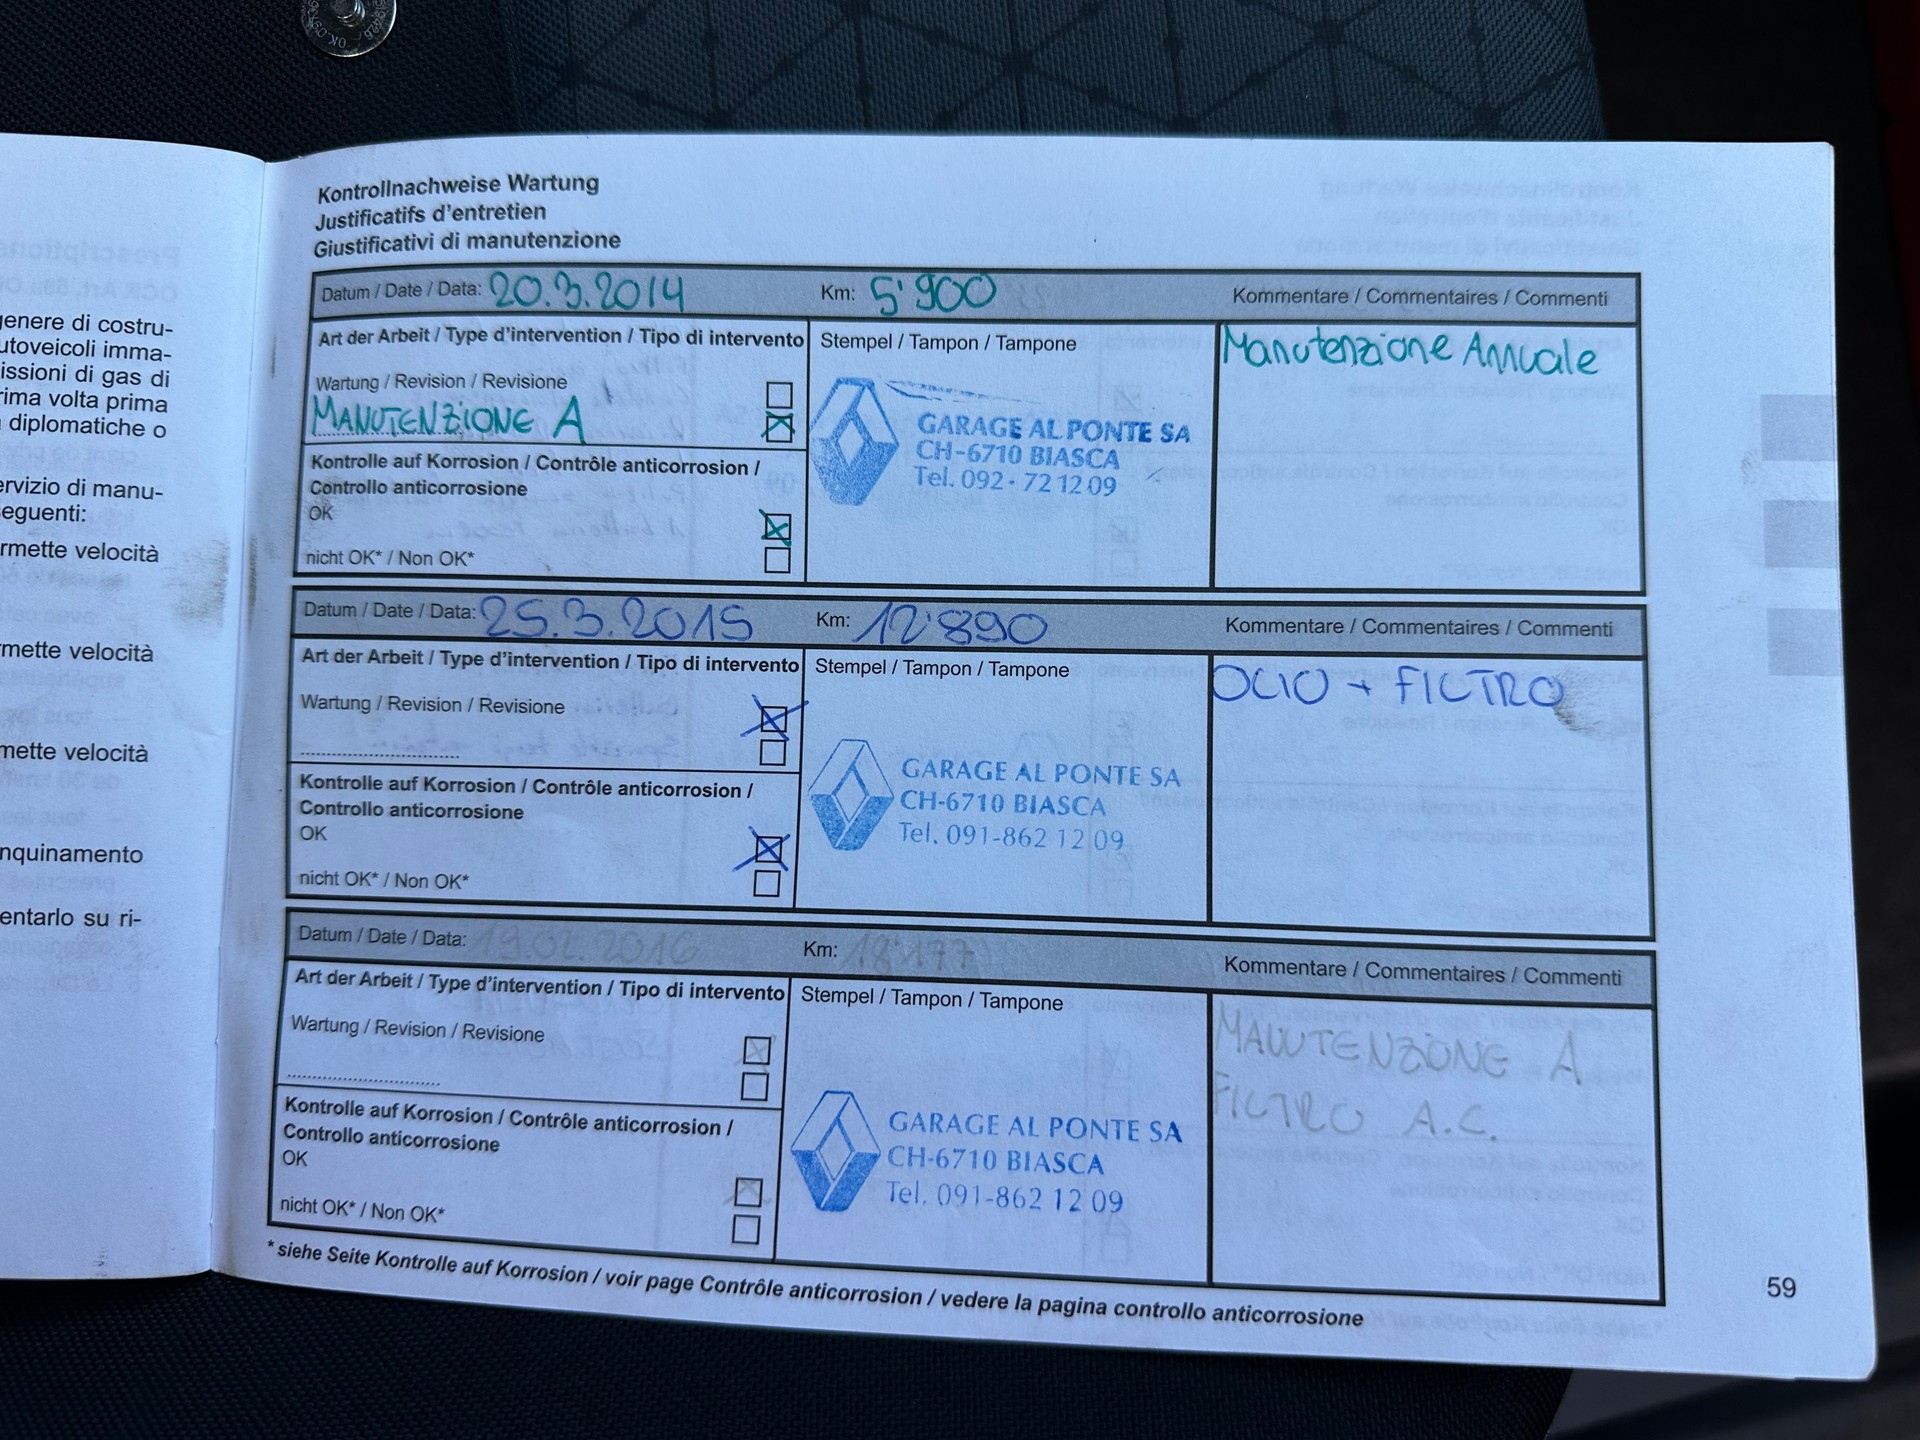 genere di costru-
utoveicoli imma-
issioni di gas di
rima volta prima
diplomatiche o
ervizio di manu-
eguenti:
rmette velocità
rmette velocità
mette velocità
nquinamento
entarlo su ri-
Kontrollnachweise Wartung
Justificatifs d'entretien
Giustificativi di manutenzione
Datum / Date / Data: 20.3.2014 Km: 5'900 Kommentare / Commentaires / Commenti
Art der Arbeit / Type d'intervention / Tipo di intervento Stempel / Tampon / Tampone Manutenzione Annuale
Wartung / Revision / Revisione
MANUTENZIONE A
GARAGE AL PONTE SA
CH-6710 BIASCA
Tel. 092 - 72 12 09
Kontrolle auf Korrosion / Contrôle anticorrosion /
Controllo anticorrosione
OK
nicht OK* / Non OK*
Datum / Date / Data: 25.3.2015 Km: 12'890 Kommentare / Commentaires / Commenti
Art der Arbeit / Type d'intervention / Tipo di intervento Stempel / Tampon / Tampone OLIO + FILTRO
Wartung / Revision / Revisione
GARAGE AL PONTE SA
CH-6710 BIASCA
Tel. 091-862 12 09
Kontrolle auf Korrosion / Contrôle anticorrosion /
Controllo anticorrosione
OK
nicht OK* / Non OK*
Datum / Date / Data: 19.02.2016 Km: 18'177 Kommentare / Commentaires / Commenti
Art der Arbeit / Type d'intervention / Tipo di intervento Stempel / Tampon / Tampone MANUTENZIONE A
Wartung / Revision / Revisione FILTRO A.C.
GARAGE AL PONTE SA
CH-6710 BIASCA
Tel. 091-862 12 09
Kontrolle auf Korrosion / Contrôle anticorrosion /
Controllo anticorrosione
OK
nicht OK* / Non OK*
* siehe Seite Kontrolle auf Korrosion / voir page Contrôle anticorrosion / vedere la pagina controllo anticorrosione
59